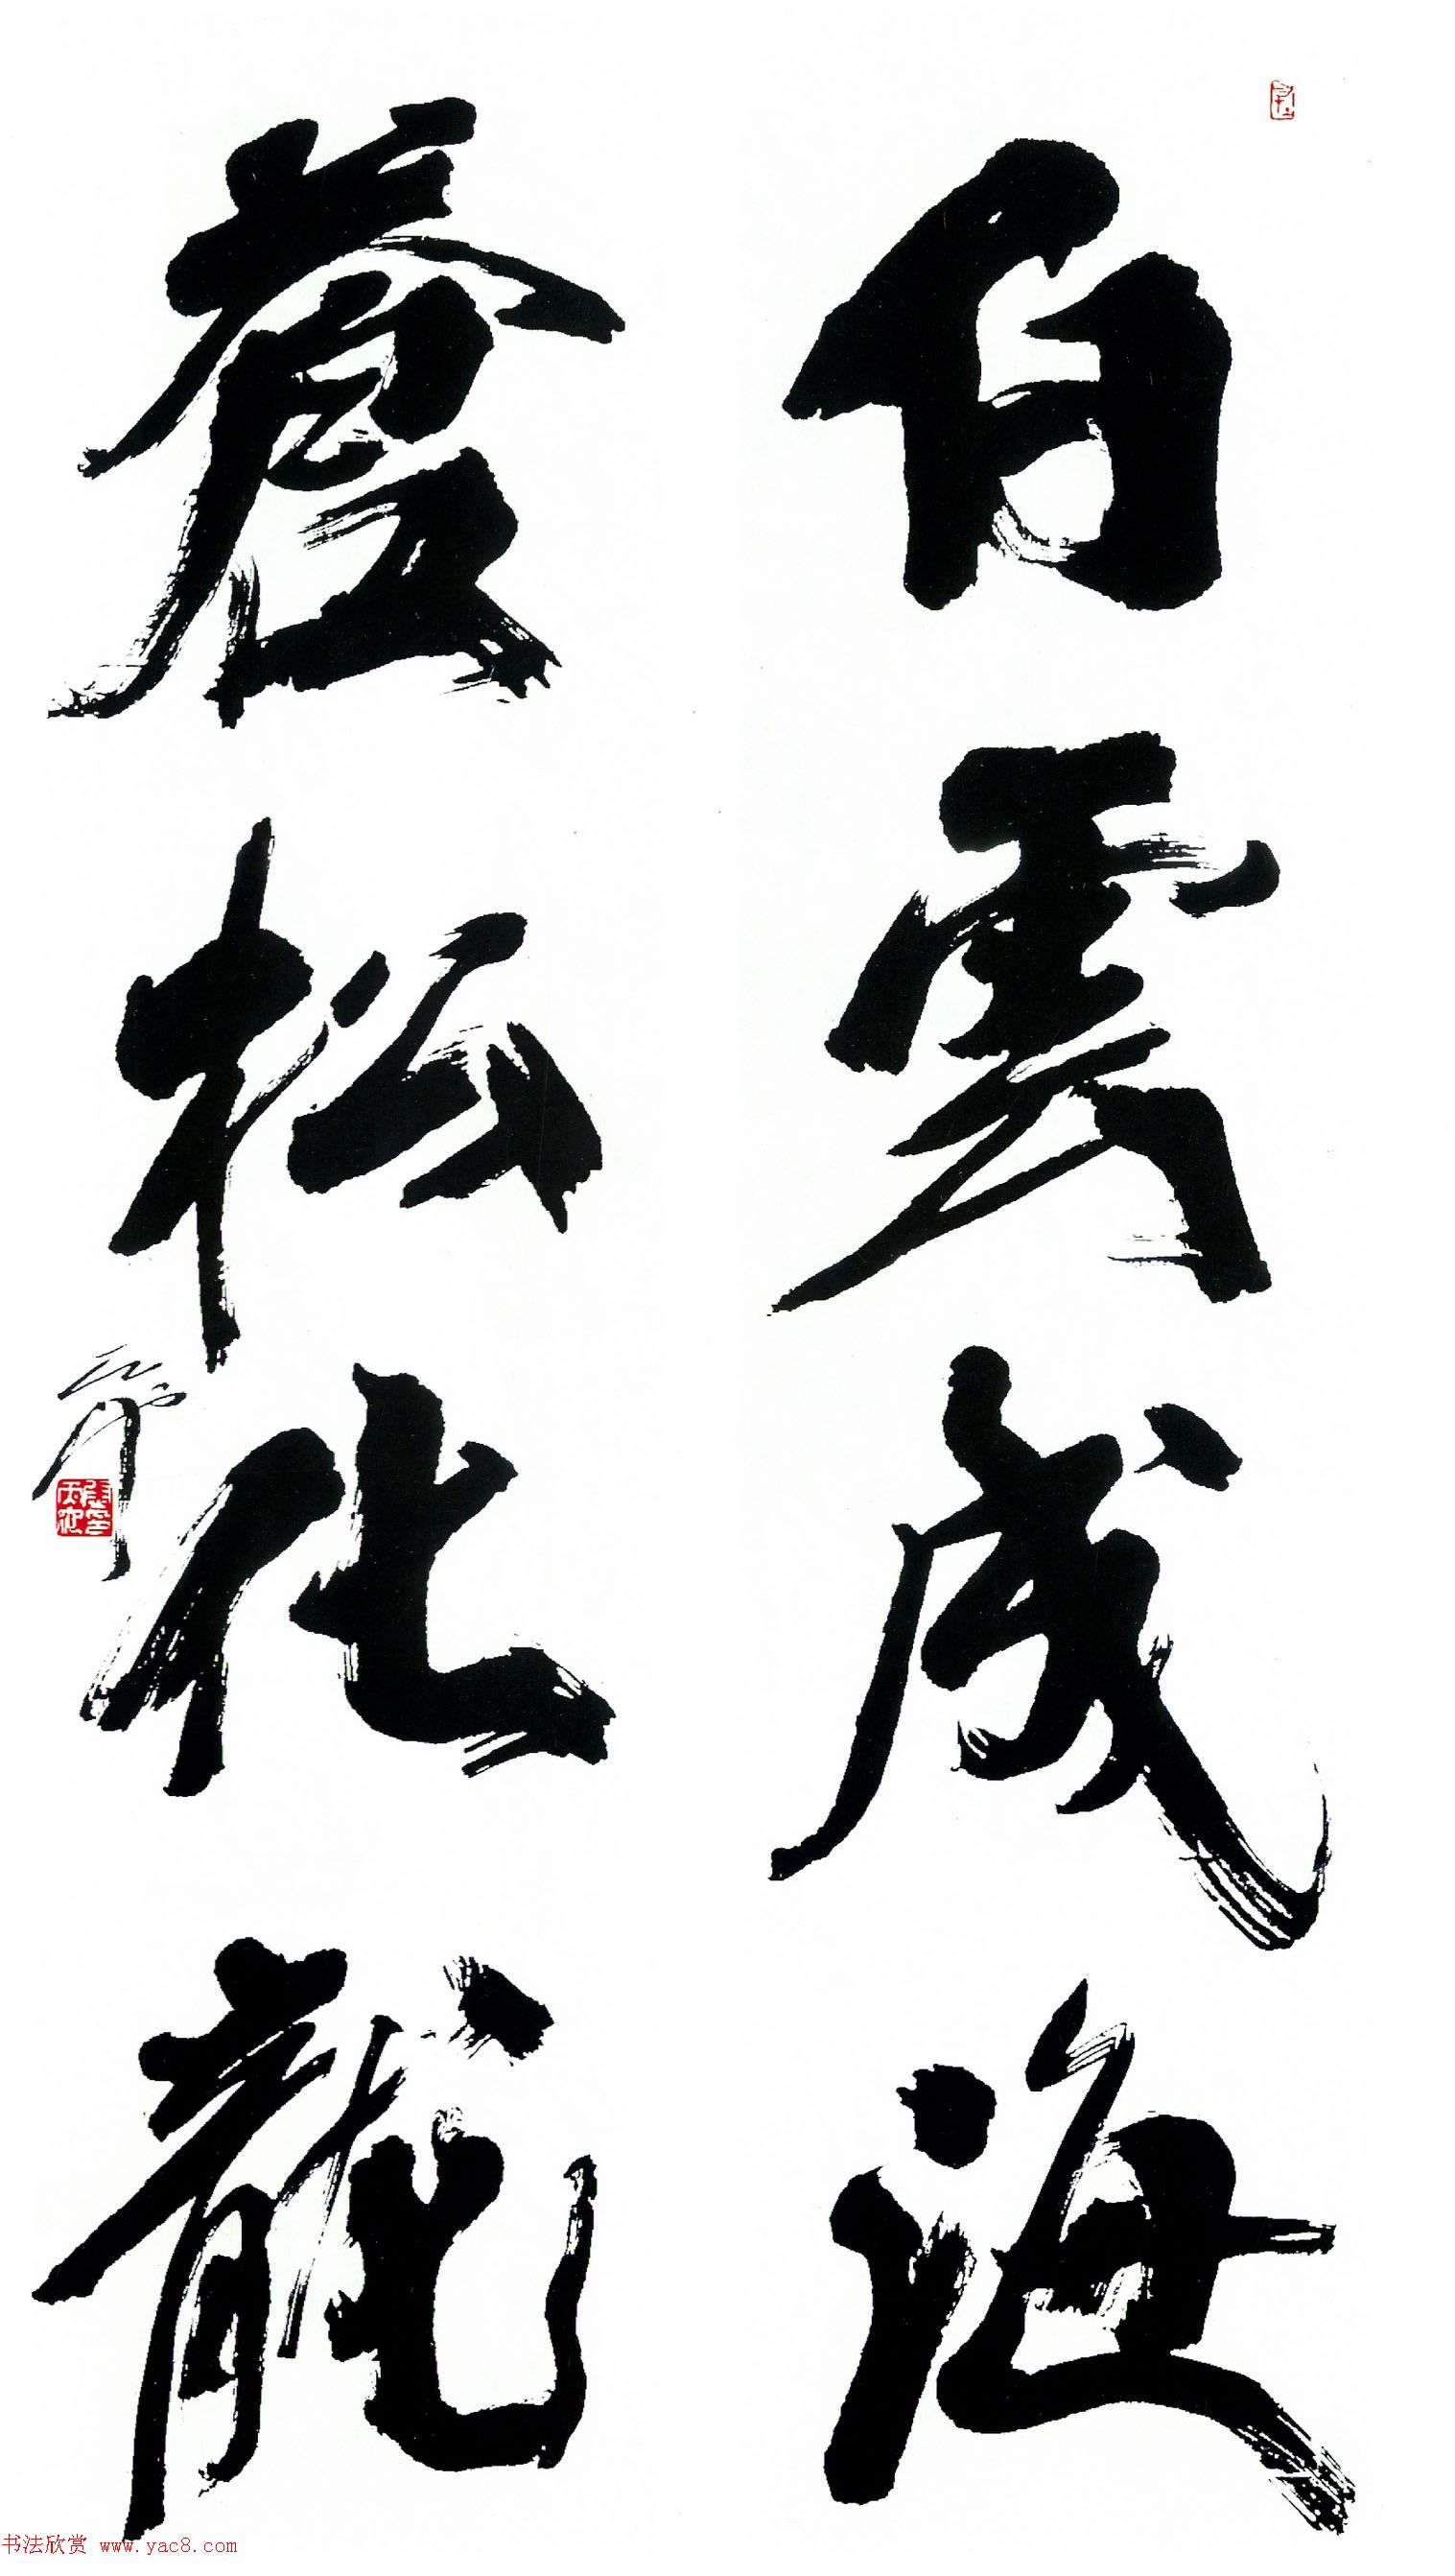 白雲成海
蒼松化龍
书法欣赏 www.yac8.com